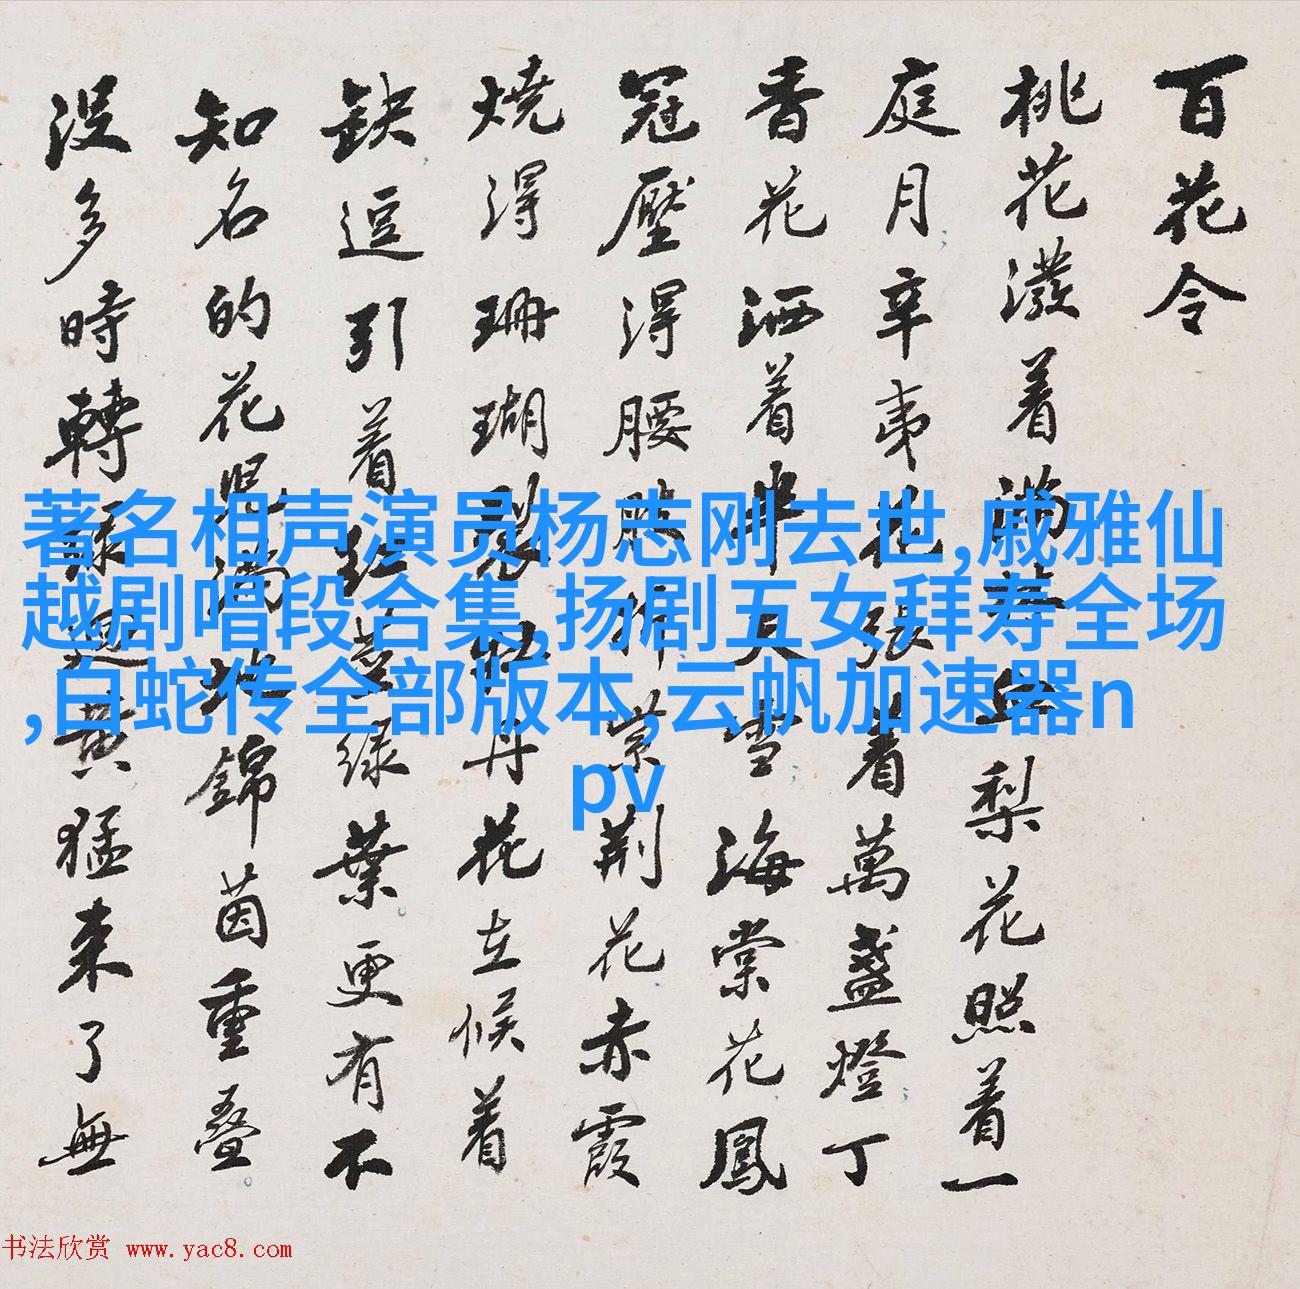 百花令
桃花潑着滿血梨花照着一
庭月辛夷花張着萬盞燈丁
香花洒着半天雪海棠花鳳
冠壓得腰肢折紫荆花赤霞
燒得珊瑚裂牡丹花立候着
缺逗引着紅莖綠葉更有不
知名的花兒滿地錦茵重叠
没多時轉綠迴黄猛來了無
著名相声演员杨志刚去世,戚雅仙
越剧唱段合集,扬剧五女拜寿全场
,白蛇传全部版本,云帆加速器n
pv
书法欣赏 www.yac8.com